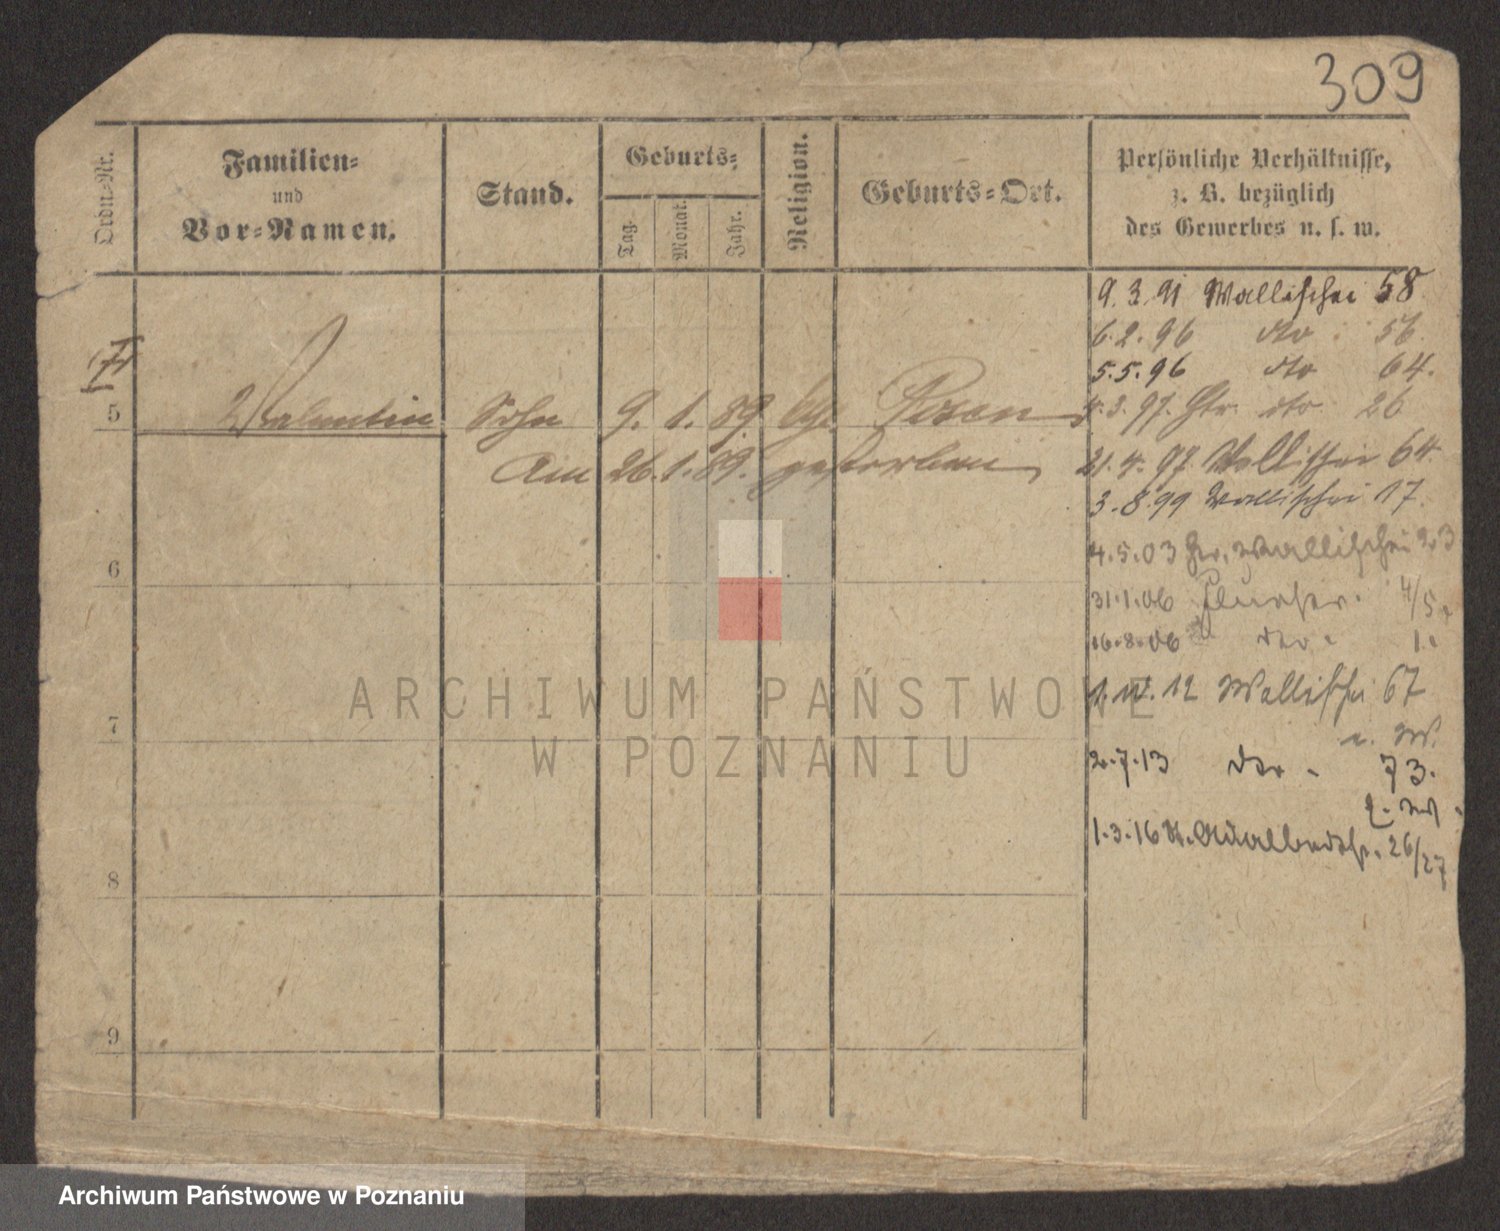 309
Ordn.-Nr.
Familien=
und
Vor=Namen.
Stand.
Geburts=
Tag.
Monat.
Jahr.
Religion.
Geburts=Ort.
Persönliche Verhältnisse,
z. B. bezüglich
des Gewerbes u. s. w.
9.3.91 Wallischei 58
6.2.96 dto 56
5.5.96 dto 64.
5 Valentin Sohn 9. 1. 89. Posen
4.3.97. dto 26
Am 26.1.89. gestorben
21.4.97 Wallischei 64
3.8.99 Wallischei 17.
6
4.5.03 Wallischei 23
31.1.06 4/5.
16.8.06 1.
7
12 Wallischei 67
2.7.13 73.
1.3.16 26/27
8
9
ARCHIWUM PAŃSTWOWE
W POZNANIU
Archiwum Państwowe w Poznaniu